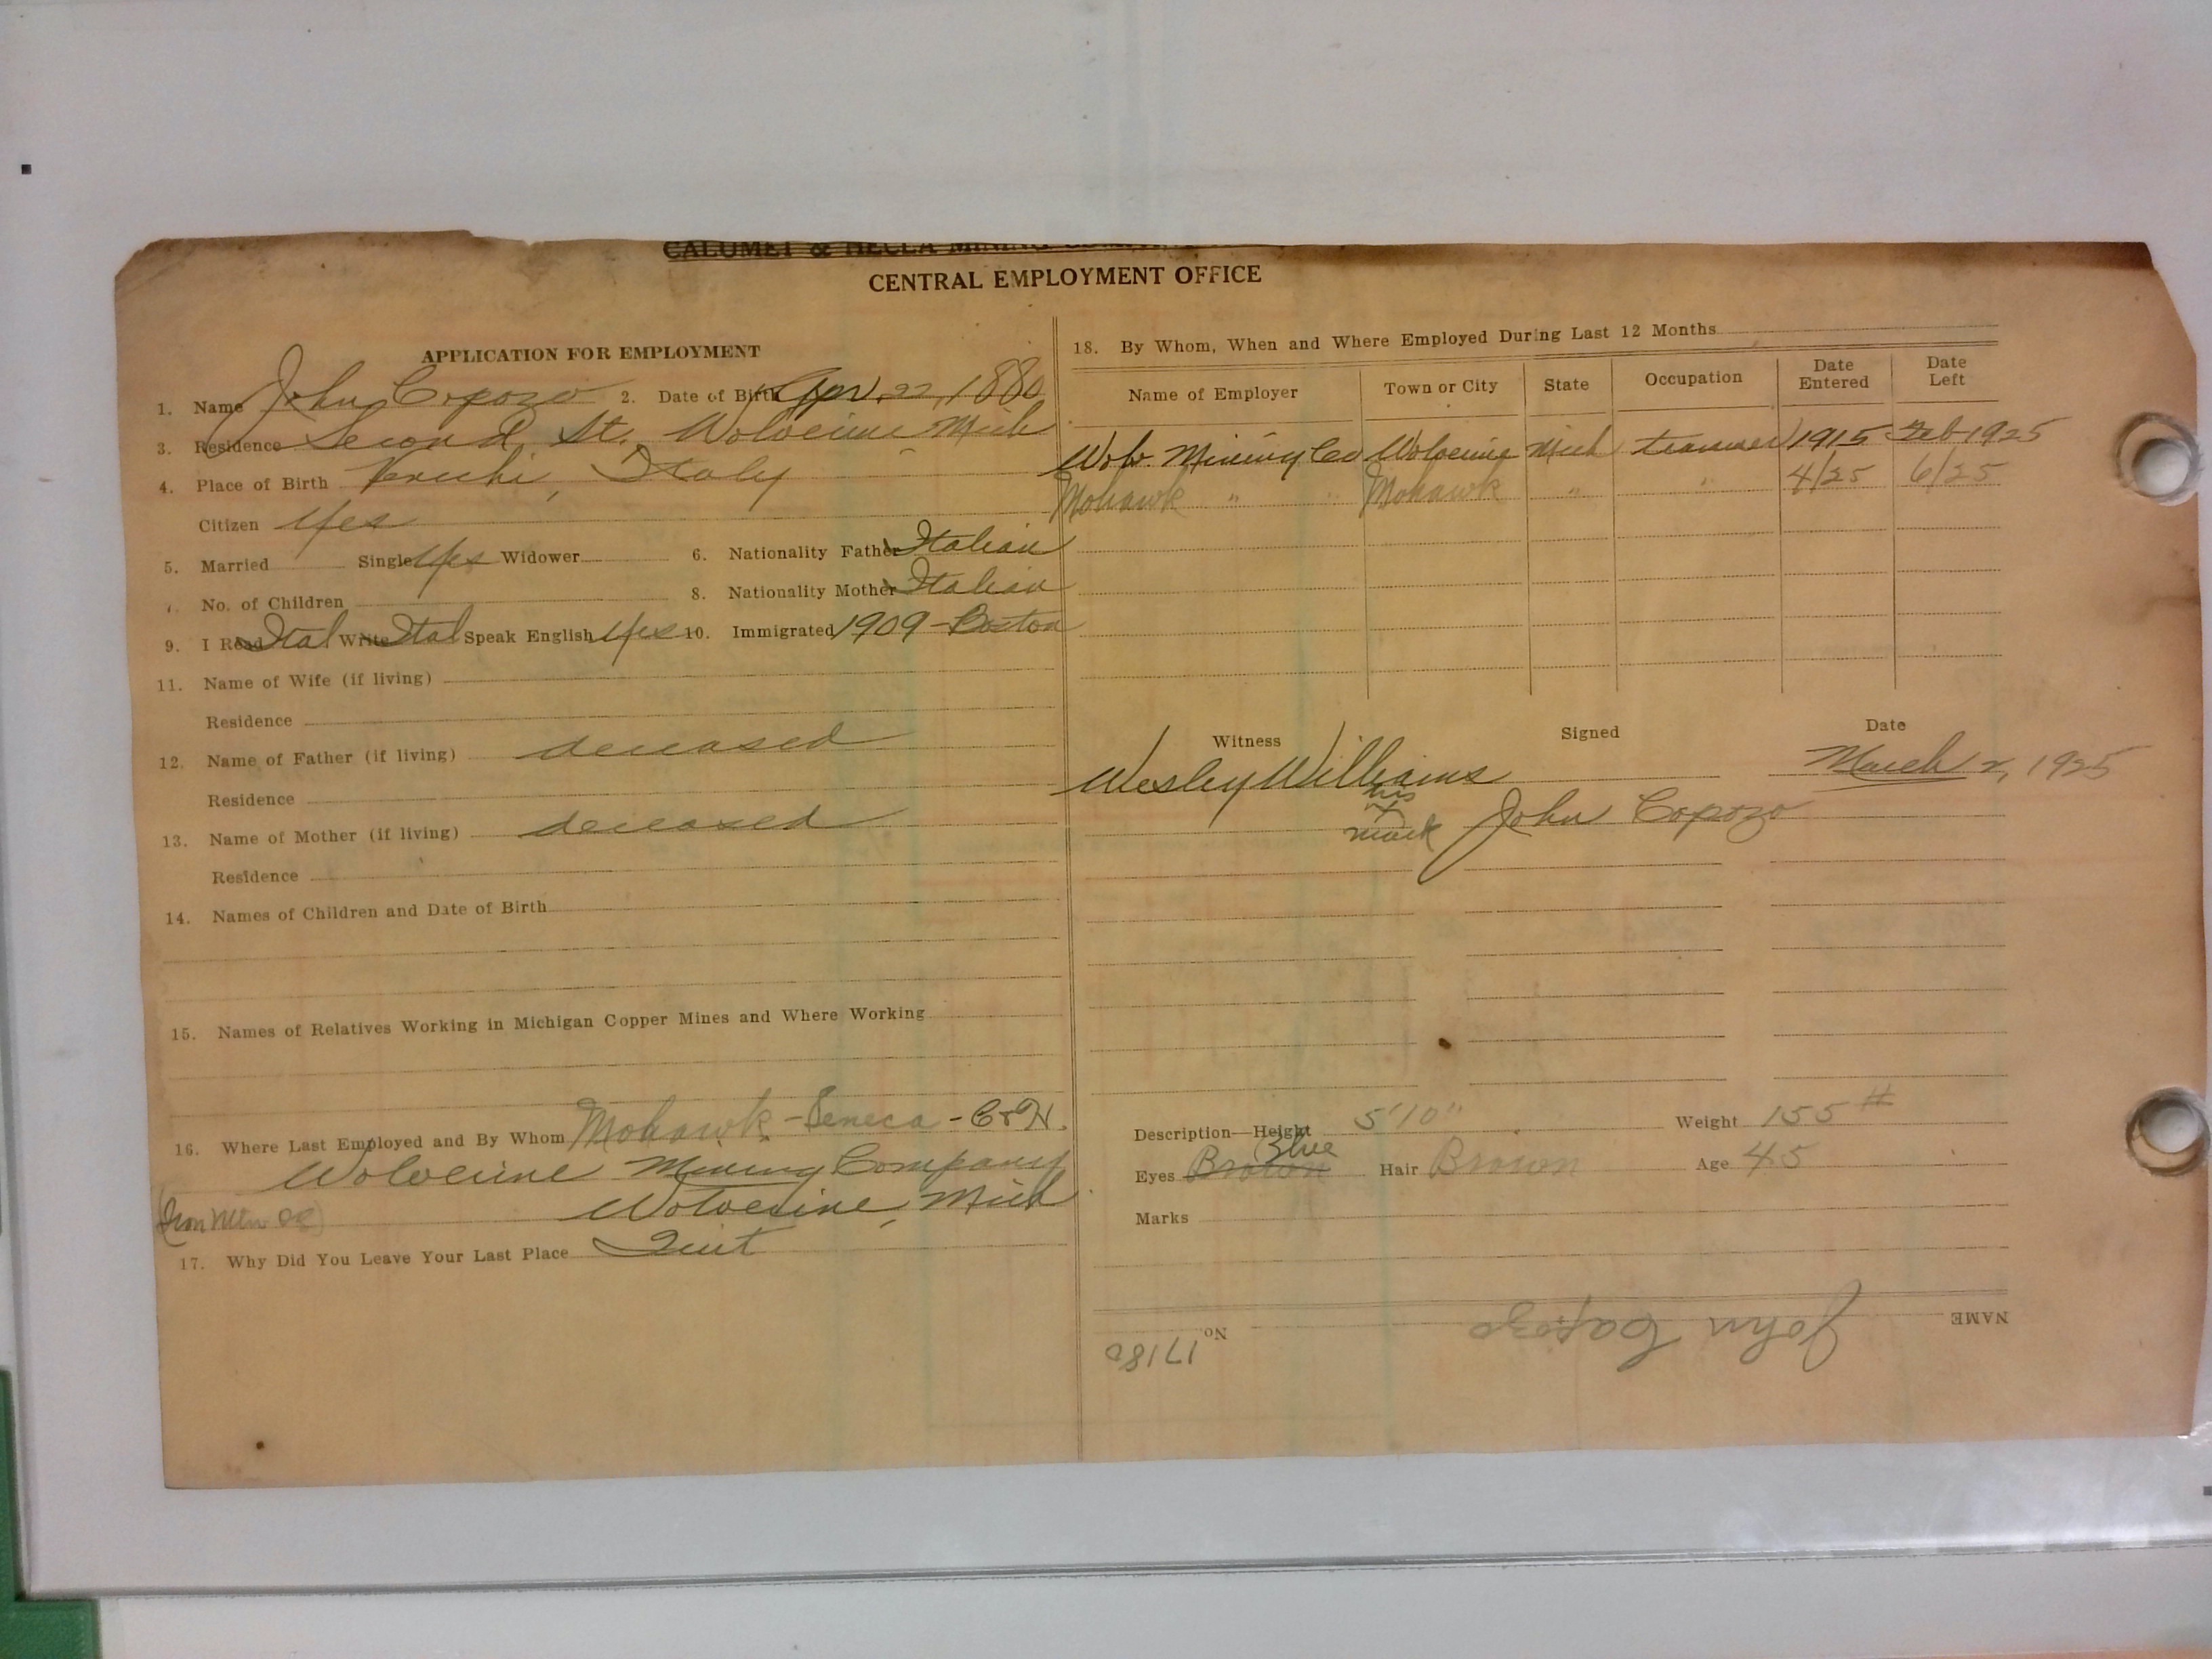 CALUMET & HECLA MINING
CENTRAL EMPLOYMENT OFFICE
APPLICATION FOR EMPLOYMENT
1. Name John Copozo 2. Date of Birth Apr. 22, 1880
3. Residence Second St. Wolverine Mich
4. Place of Birth Italy
Citizen Yes
5. Married Single Yes Widower 6. Nationality Father Italian
No. of Children 8. Nationality Mother Italian
9. I Read Ital Write Ital Speak English Yes 10. Immigrated 1909 - Boston
11. Name of Wife (if living)
Residence
12. Name of Father (if living) deceased
Residence
13. Name of Mother (if living) deceased
Residence
14. Names of Children and Date of Birth
15. Names of Relatives Working in Michigan Copper Mines and Where Working
16. Where Last Employed and By Whom Mohawk - Seneca - C & H.
Wolverine Mining Company
(Iron Mtn OK) Wolverine, Mich
17. Why Did You Leave Your Last Place Quit
18. By Whom, When and Where Employed During Last 12 Months
Name of Employer Town or City State Occupation Date Entered Date Left
Wolv. Mining Co Wolverine Mich trammer 1915 Feb 1925
Mohawk " " Mohawk " " 4/25 6/25
Witness Signed Date
Wesley Williams March 2, 1925
his
x John Copozo
mark
Description—Height 5'10" Weight 155 #
Blue
Eyes Brown Hair Brown Age 45
Marks
NAME John Capozo No. 17180